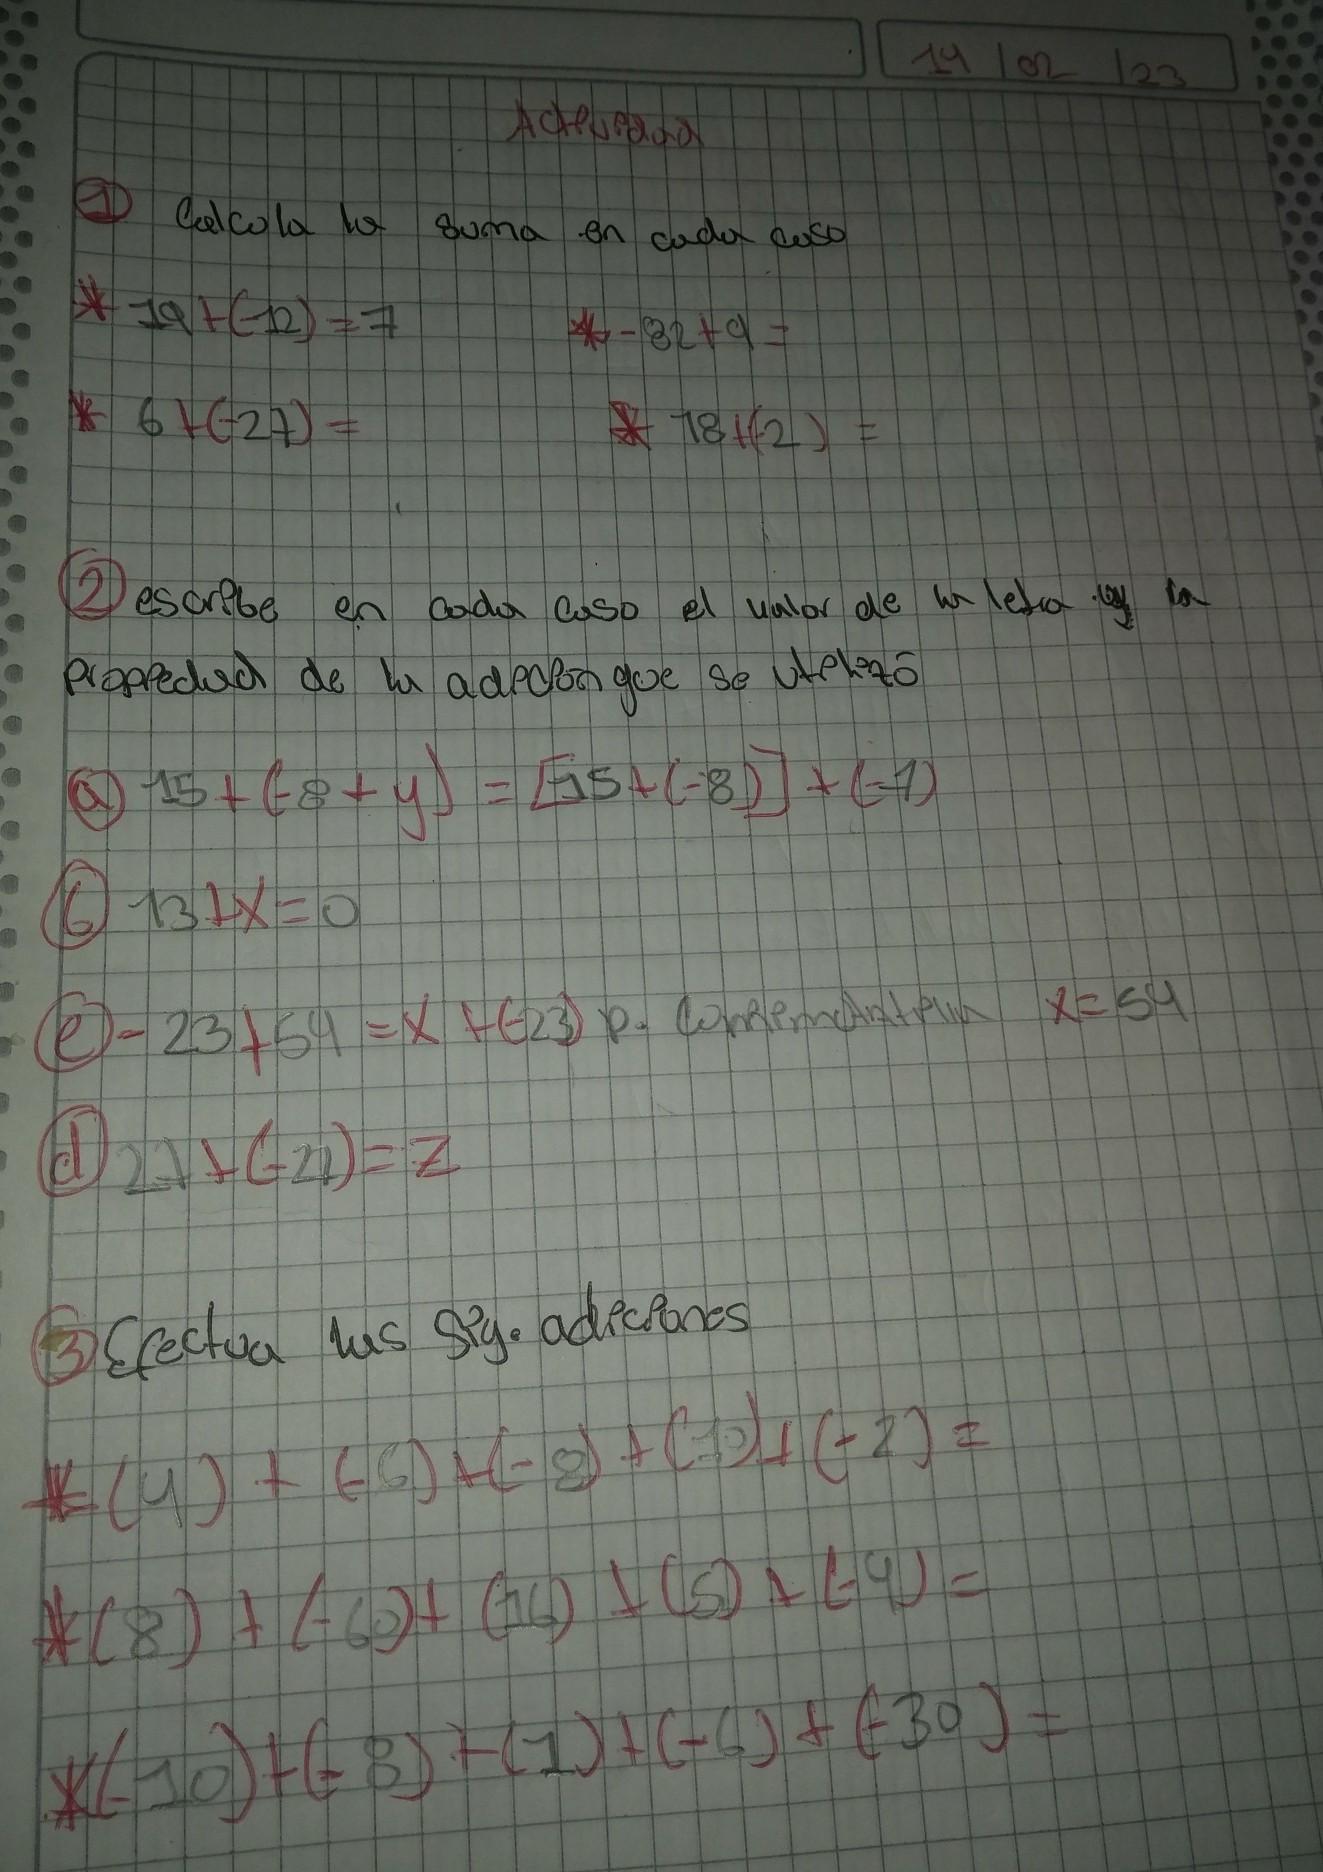 14 / 02 / 23
Actividad
① Calcula la suma en cada caso
* 19+(-12)=7 * -32+9=
* 6+(-27)= * 18+(-2)=
② escribe en cada caso el valor de la letra y la
propiedad de la adicion que se utilizó
ⓐ 15+(-8+y)=[15+(-8)]+(-7)
13+x=0
-23+54=x+(-23) p. x=54
ⓓ 27+(-27)=z
③ Efectua las sig. adiciones
* (4)+(-6)+(-8)+(10)+(-2)=
* (8)+(-60)+(16)+(5)+(-9)=
* (-10)+(-8)+(1)+(-6)+(-30)=